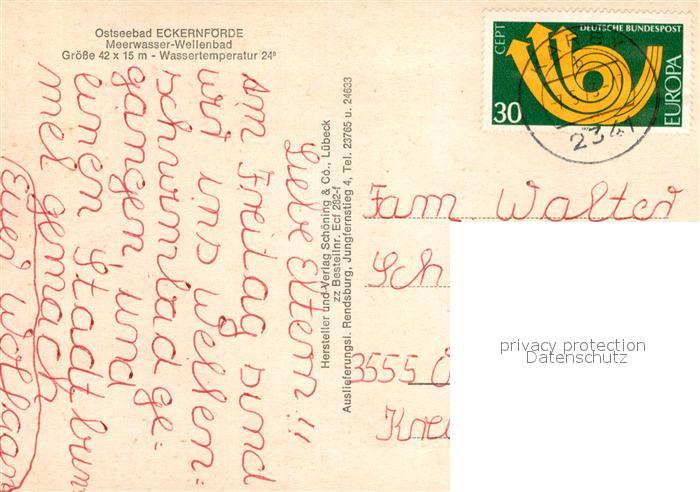 Ostseebad ECKERNFÖRDE
Meerwasser-Wellenbad
Größe 42 x 15 m - Wassertemperatur 24°
Liebe Eltern!!
Am Freitag sind
wir ins Wellen=
schwimmbad ge=
gangen und
einen Stadtbum
mel gemach
Euer Wolfgang
Hersteller und Verlag Schöning & Co., Lübeck
zz Bestellnr. Ecf 282-f
Auslieferungsl. Rendsburg, Jungfernstieg 4, Tel. 23765 u. 24633
CEPT
DEUTSCHE BUNDESPOST
EUROPA
30
2341
Fam. Walter
Sch
3555
Krei
privacy protection
Datenschutz